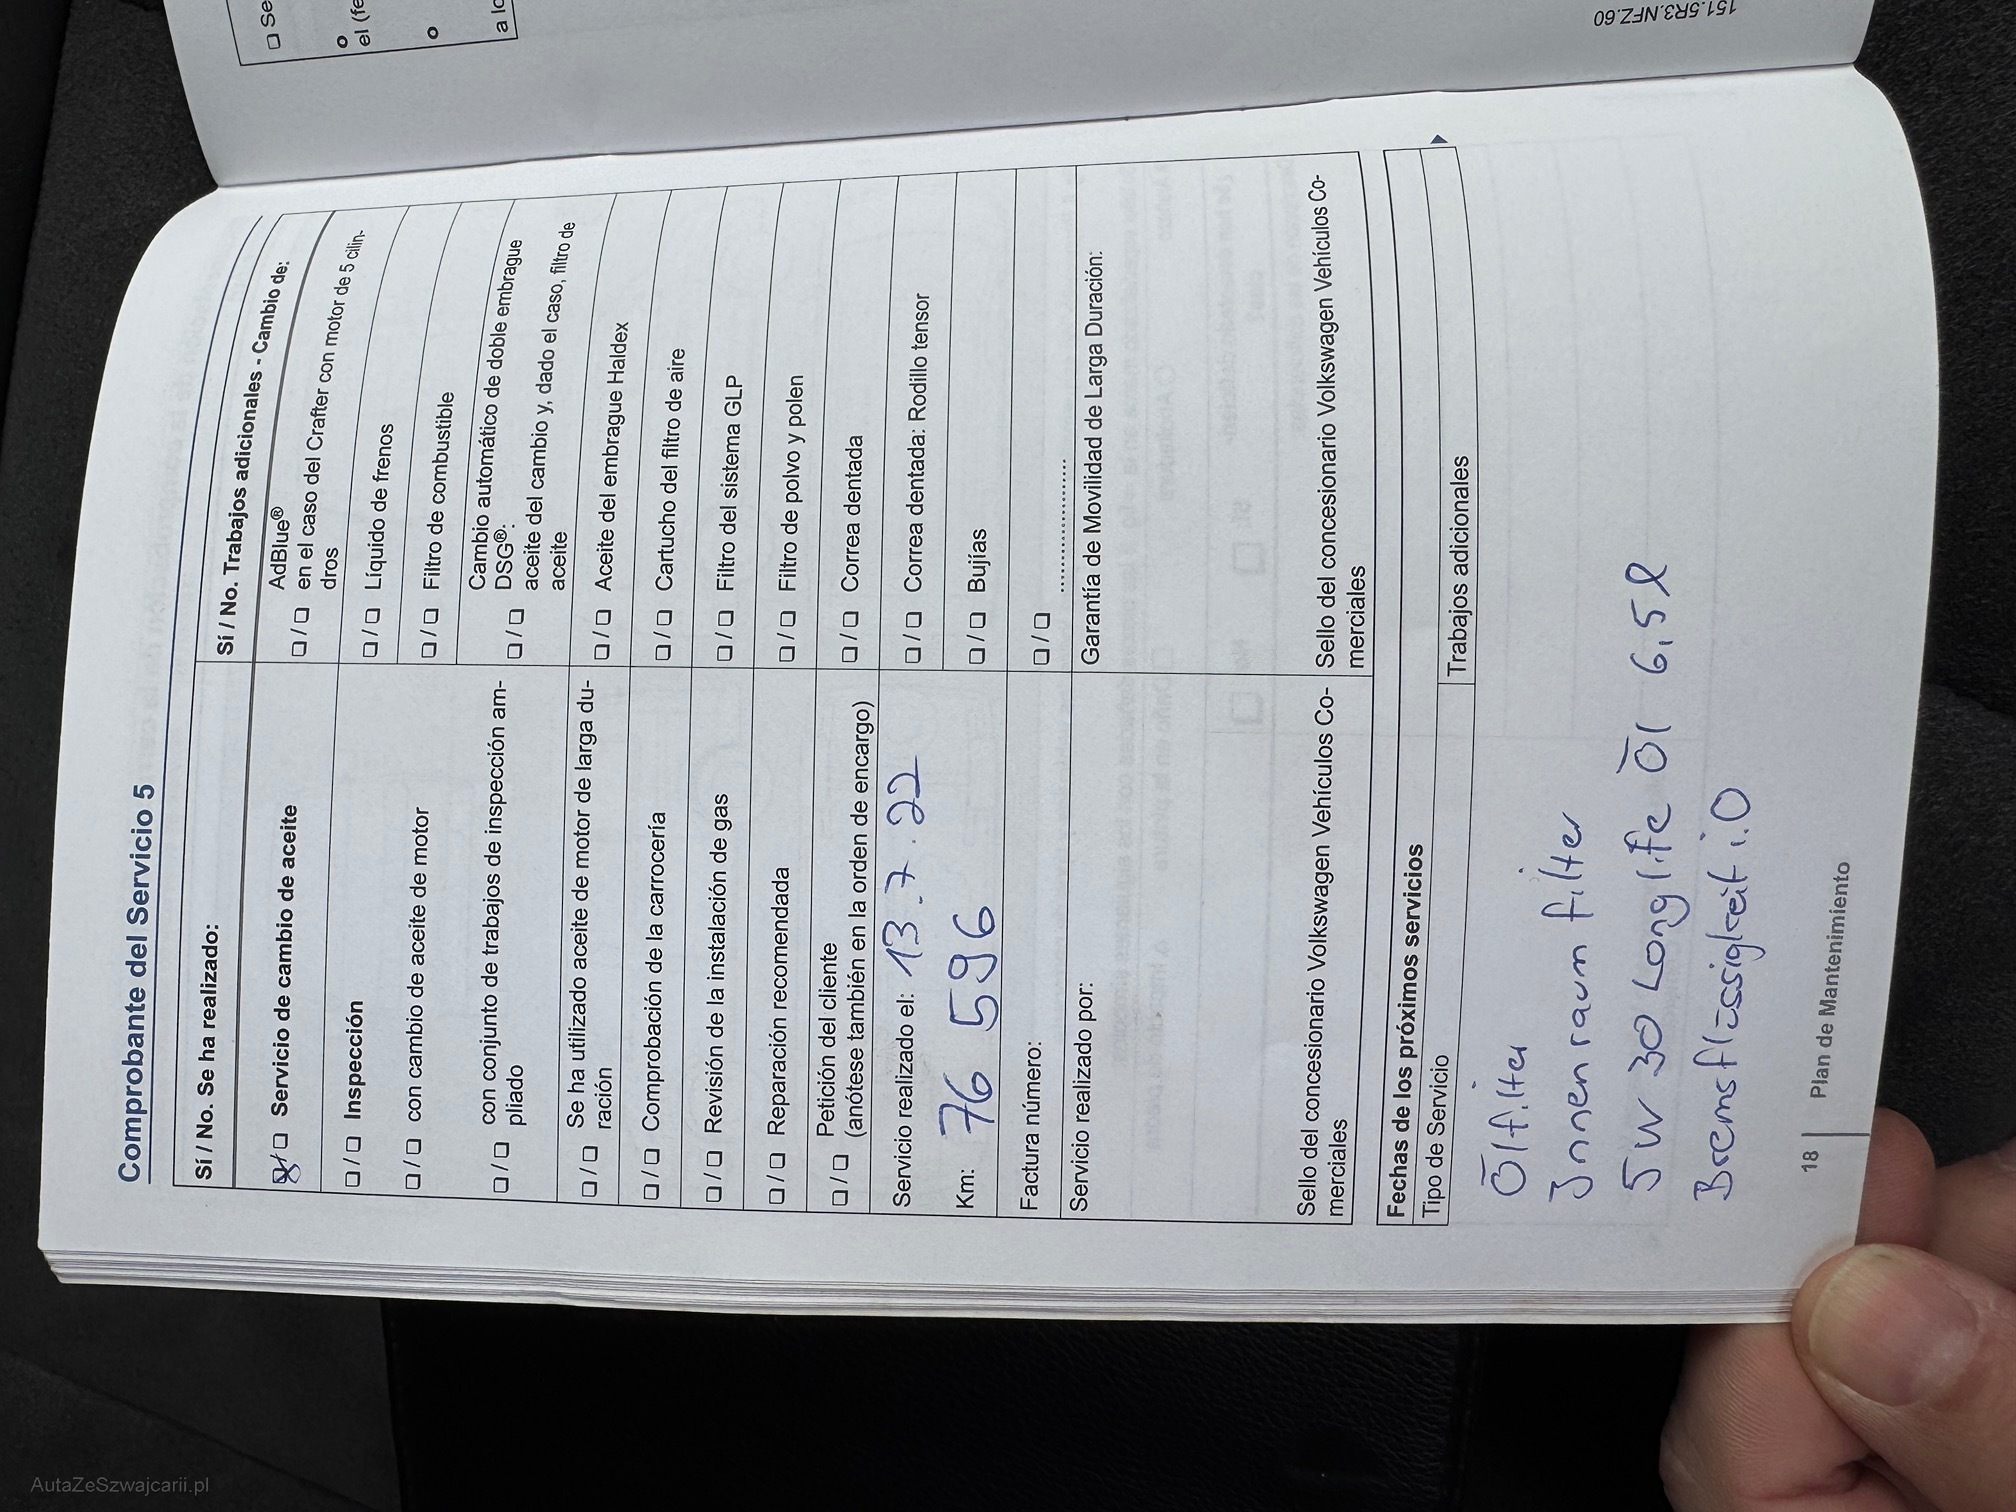 Comprobante del Servicio 5
Sí / No. Se ha realizado:
☐ / ☐ Servicio de cambio de aceite
☐ / ☐ Inspección
☐ / ☐ con cambio de aceite de motor
con conjunto de trabajos de inspección am-
☐ / ☐ pliado
Se ha utilizado aceite de motor de larga du-
☐ / ☐ ración
☐ / ☐ Comprobación de la carrocería
☐ / ☐ Revisión de la instalación de gas
☐ / ☐ Reparación recomendada
Petición del cliente
☐ / ☐ (anótese también en la orden de encargo)
Servicio realizado el: 13.7.22
Km: 76 596
Factura número:
Servicio realizado por:
Sello del concesionario Volkswagen Vehículos Co-
merciales
Sí / No. Trabajos adicionales - Cambio de:
AdBlue®
☐ / ☐ en el caso del Crafter con motor de 5 cilin-
dros
☐ / ☐ Líquido de frenos
☐ / ☐ Filtro de combustible
Cambio automático de doble embrague
DSG®:
☐ / ☐ aceite del cambio y, dado el caso, filtro de
aceite
☐ / ☐ Aceite del embrague Haldex
☐ / ☐ Cartucho del filtro de aire
☐ / ☐ Filtro del sistema GLP
☐ / ☐ Filtro de polvo y polen
☐ / ☐ Correa dentada
☐ / ☐ Correa dentada: Rodillo tensor
☐ / ☐ Bujías
☐ / ☐ ......................
Garantía de Movilidad de Larga Duración:
Sello del concesionario Volkswagen Vehículos Co-
merciales
Fechas de los próximos servicios
Tipo de Servicio
Trabajos adicionales
Ölfilter
Innenraum filter
5W 30 Longlife Öl 6,5l
Bremsflüssigkeit i.O
18 Plan de Mantenimiento
☐ Se
el (fe
a lo
151.5R3.NFZ.60
AutaZeSzwajcarii.pl